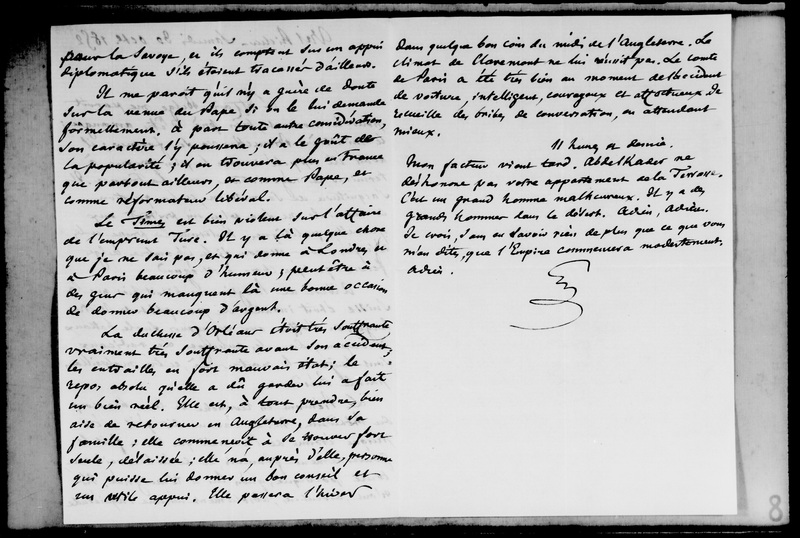 pour la Savoye, et ils comptent sur un appui
diplomatique s'ils étoient tracassés d'ailleurs.
Il me paroit qu'il n'y a guère de doute
sur la venue du Pape, si on le lui demande
formellement. à part toute autre considération,
son caractère l'y poussera ; il a le goût de
la popularité ; il en trouvera plus en France
que partout ailleurs, et comme Pape, et
comme réformateur libéral.
Le Times est bien violent sur l'affaire
de l'emprunt Turc. Il y a là quelque chose
que je ne sais pas, et qui donne à Londres et
à Paris beaucoup d'humeur ; peut être à
des gens qui manquent là une bonne occasion
de donner beaucoup d'argent.
La duchesse d'Orléans étoit très souffrante
vraiment très souffrante avant son accident ;
les entrailles en fort mauvais état ; le
repos absolu qu'elle a dû garder lui a fait
un bien réel. Elle est, à tout prendre, bien
aise de retourner en Angleterre, dans sa
famille ; elle commençoit à se trouver fort
seule, délaissée ; elle n'a, auprès d'elle, personne
qui puisse lui donner un bon conseil et
un utile appui. Elle passera l'hiver
dans quelque bon coin du midi de l'Angleterre. Le
climat de Claremont ne lui réussit pas. Le comte
de Paris a été très bien au moment de l'accident
de voiture, intelligent, courageux et affectueux. Je
recueille des bribes de conversation, en attendant
mieux.
11 heures et demie.
Mon facteur vient tard. Abdelkader ne
deshonore pas votre appartement de la Terrasse.
C'est un grand homme malheureux. Il y a des
grands hommes dans le désert. Adieu, Adieu.
Je crois, sans en savoir rien de plus que ce que vous
m'en dites, que l'Empire commencera modestement.
Adieu.
8